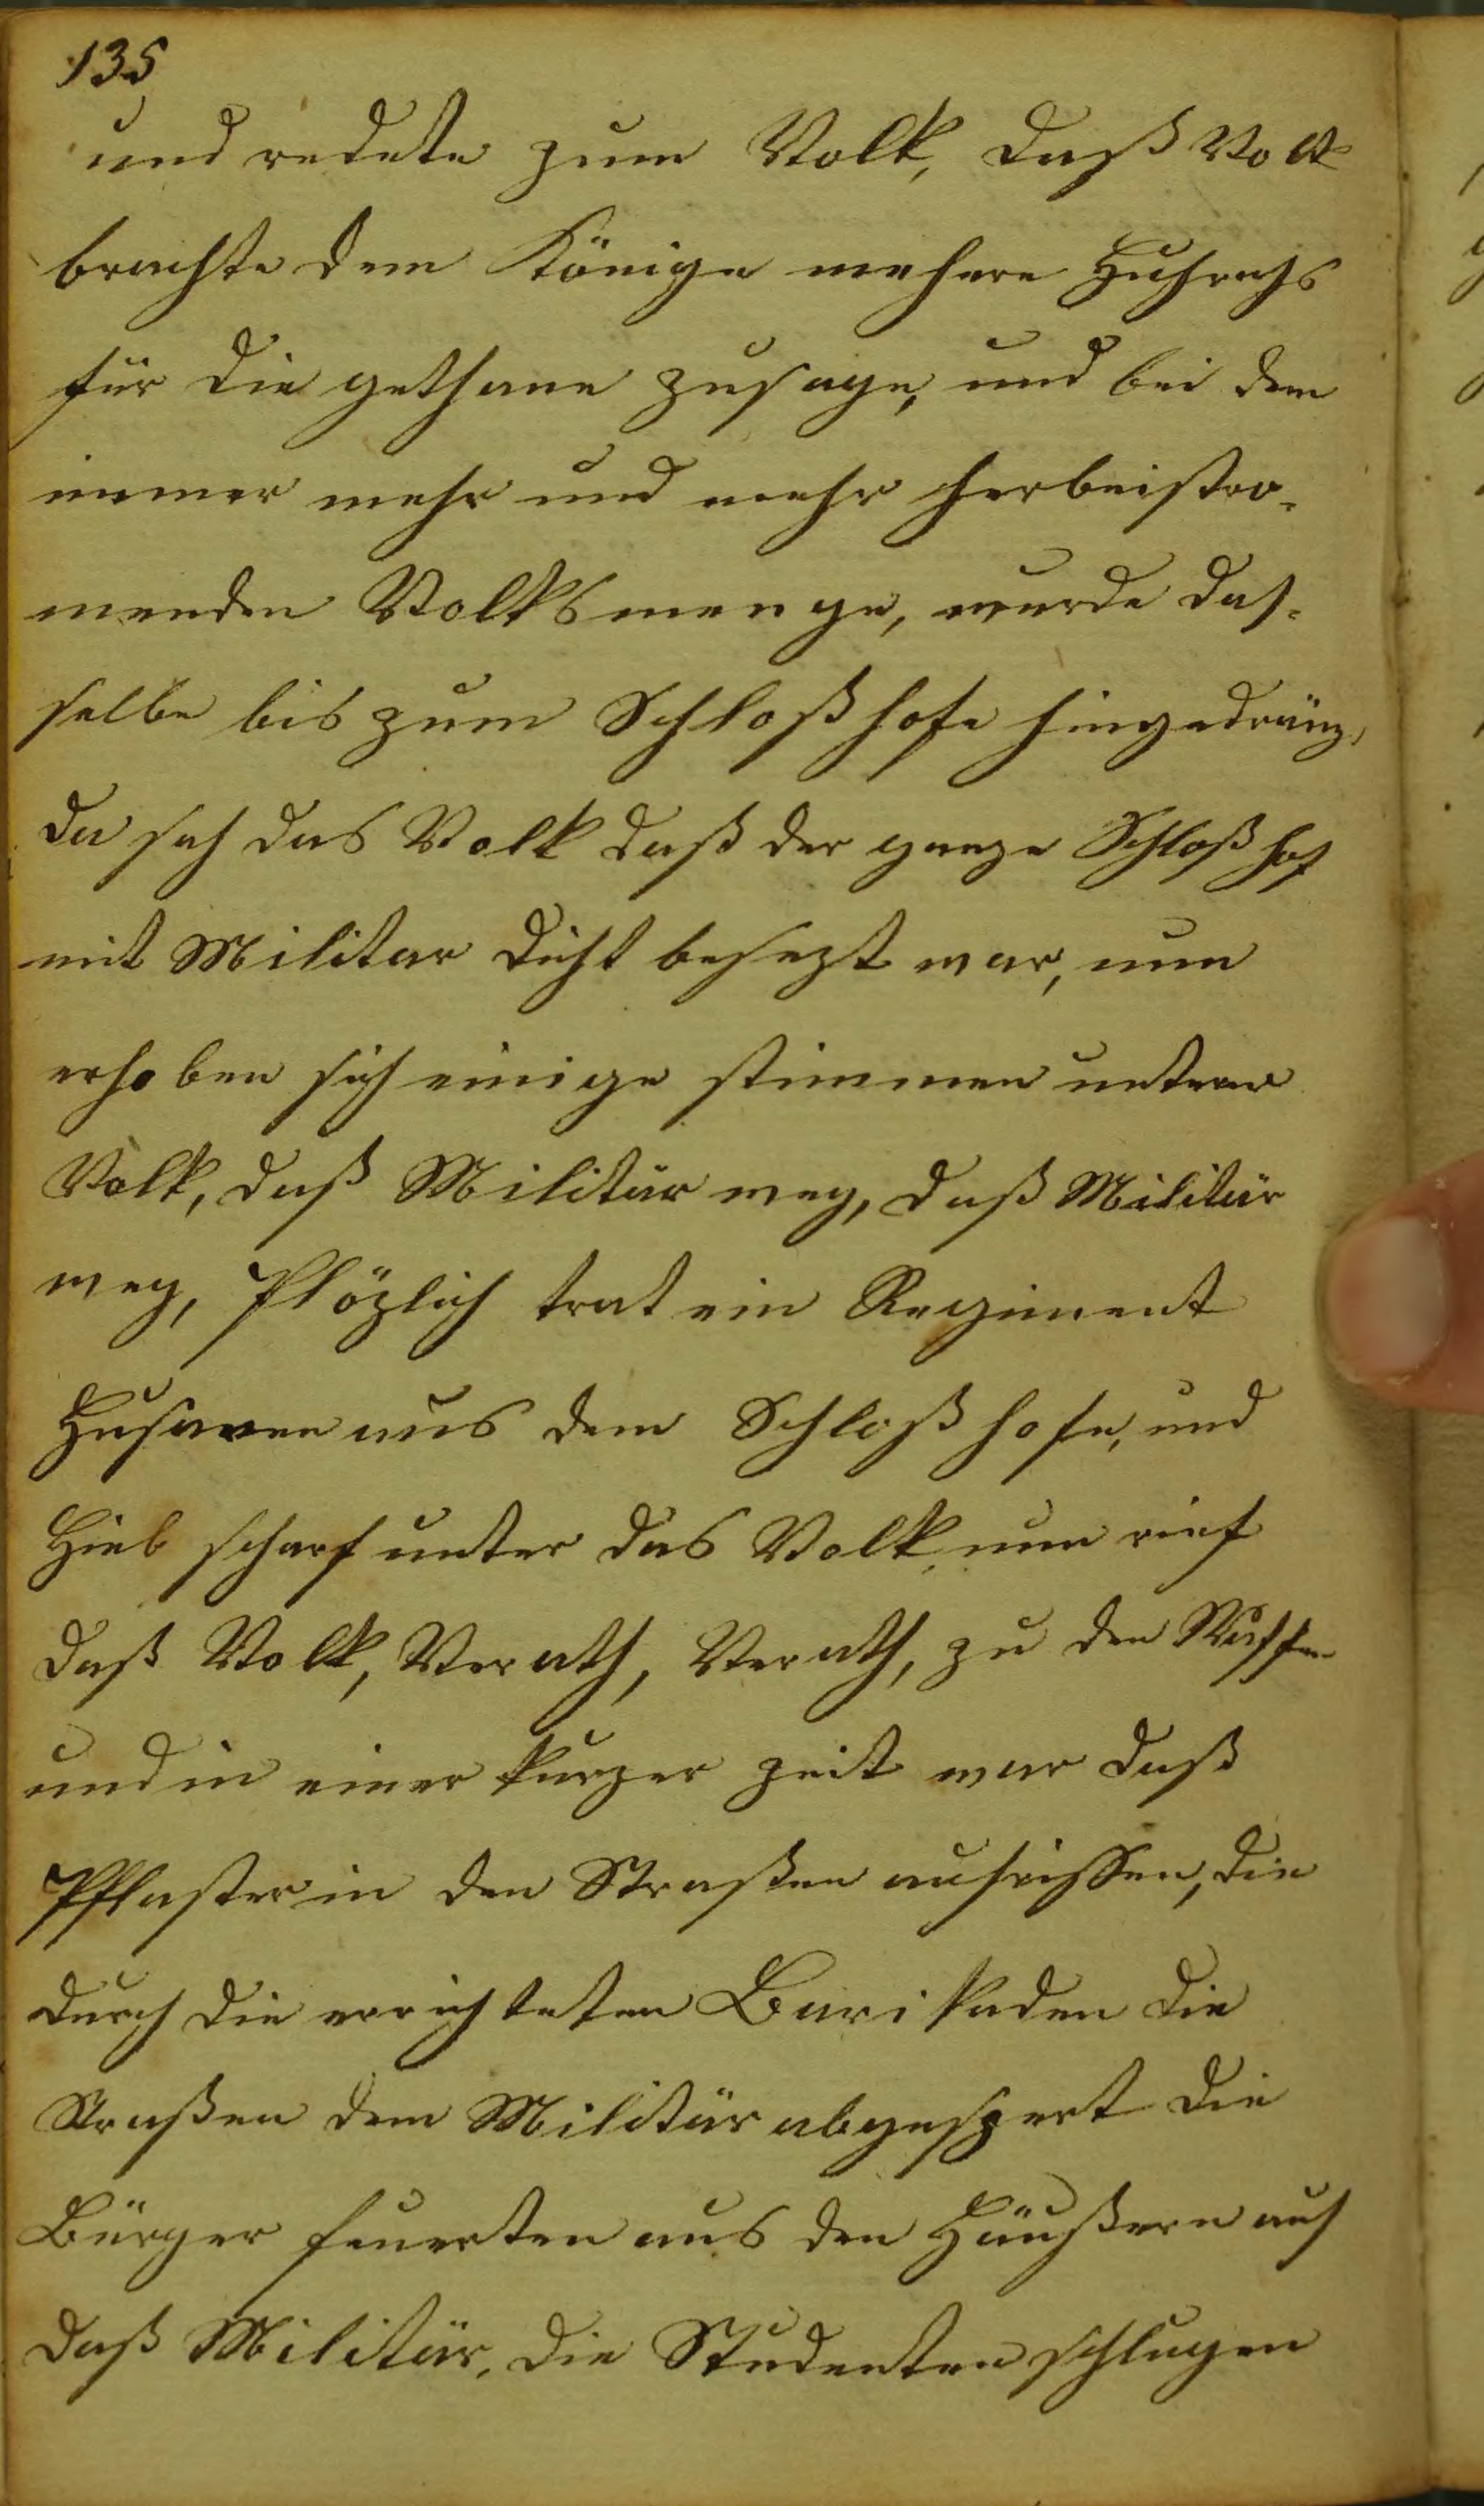 135
und redete zum Volk, daß Volk
brachte dem Könige mehere Huhrahs
für die gethane zusage, und bei dem
immer mehr und mehr herbeistro-
menden Volksmenge, wurde das-
selbe bis zum Schloßhofe hingedräng,
da sah das Volk daß der ganze Schloßhof
mit Militar dicht besezt war, nun
erhoben sich einige stimmen unterm
Volk, daß Militär weg, daß Militär
weg, Plözlich trat ein Regiment
Husaren aus dem Schloßhofe, und
Hieb scharf unter das Volk, nun rief
daß Volk, Verath, Verath, zu den Waffen
und in einer kurzer zeit war daß
Pflaster in den Straßen aufrissen, die
durch die errichteten Barikaden die
Straßen dem Militär abgespert die
Bürger feuerten aus den Häußern auf
daß Militär, die Studenten schlugen